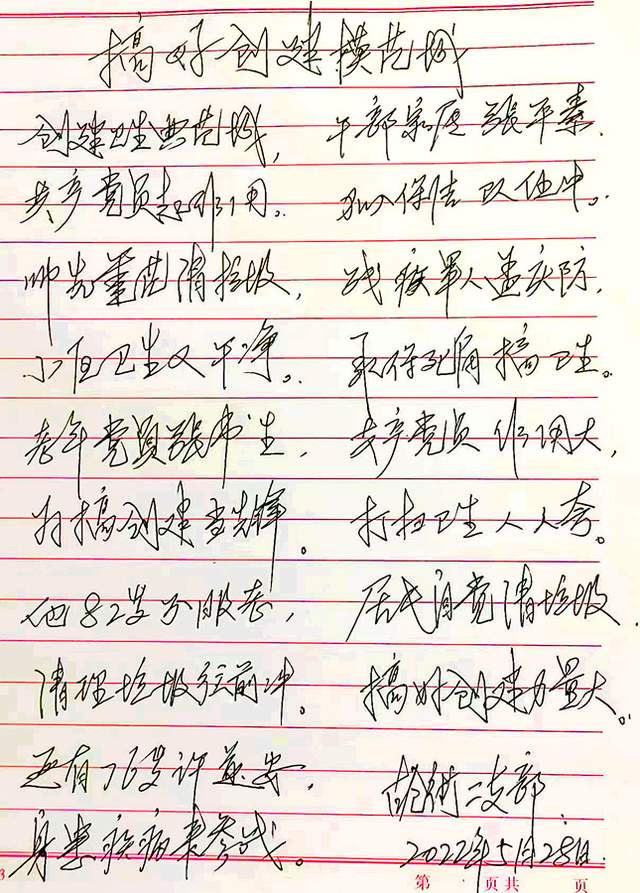 搞好创建模范城
创建卫生典范城,
共产党员起作用。
帅先垂范清垃圾,
小区卫生又干净。
老年党员张书生,
为搞创建当先锋。
他82岁不服老,
清理垃圾往前冲。
还有76岁许安,
身患疾病来参战。
干部家属张平素,
加入保洁队伍中。
残疾军人孟庆防,
承保死角搞卫生。
共产党员作用大,
打扫卫生人人夸。
居民自觉清垃圾,
搞好创建力量大。
二支部
2022年5月28日
第 页共 页